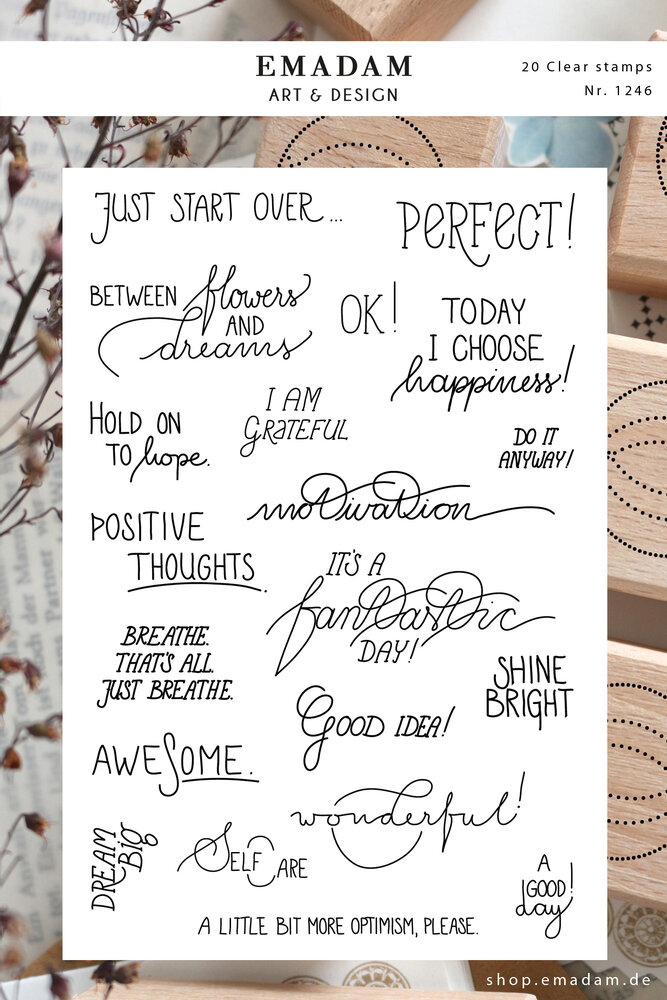 EMADAM
ART & DESIGN
20 Clear stamps
Nr. 1246
JUST START OVER...
PERFECT!
BETWEEN flowers
AND
dreams
OK!
TODAY
I CHOOSE
happiness!
HOLD ON
TO hope.
I AM
GRATEFUL
DO IT
ANYWAY!
motivation
POSITIVE
THOUGHTS.
IT'S A
fantastic
DAY!
BREATHE.
THAT'S ALL.
JUST BREATHE.
SHINE
BRIGHT
GOOD IDEA!
AWESOME.
wonderful!
DREAM
Big
SELFCARE
A
GOOD
day!
A LITTLE BIT MORE OPTIMISM, PLEASE.
shop.emadam.de